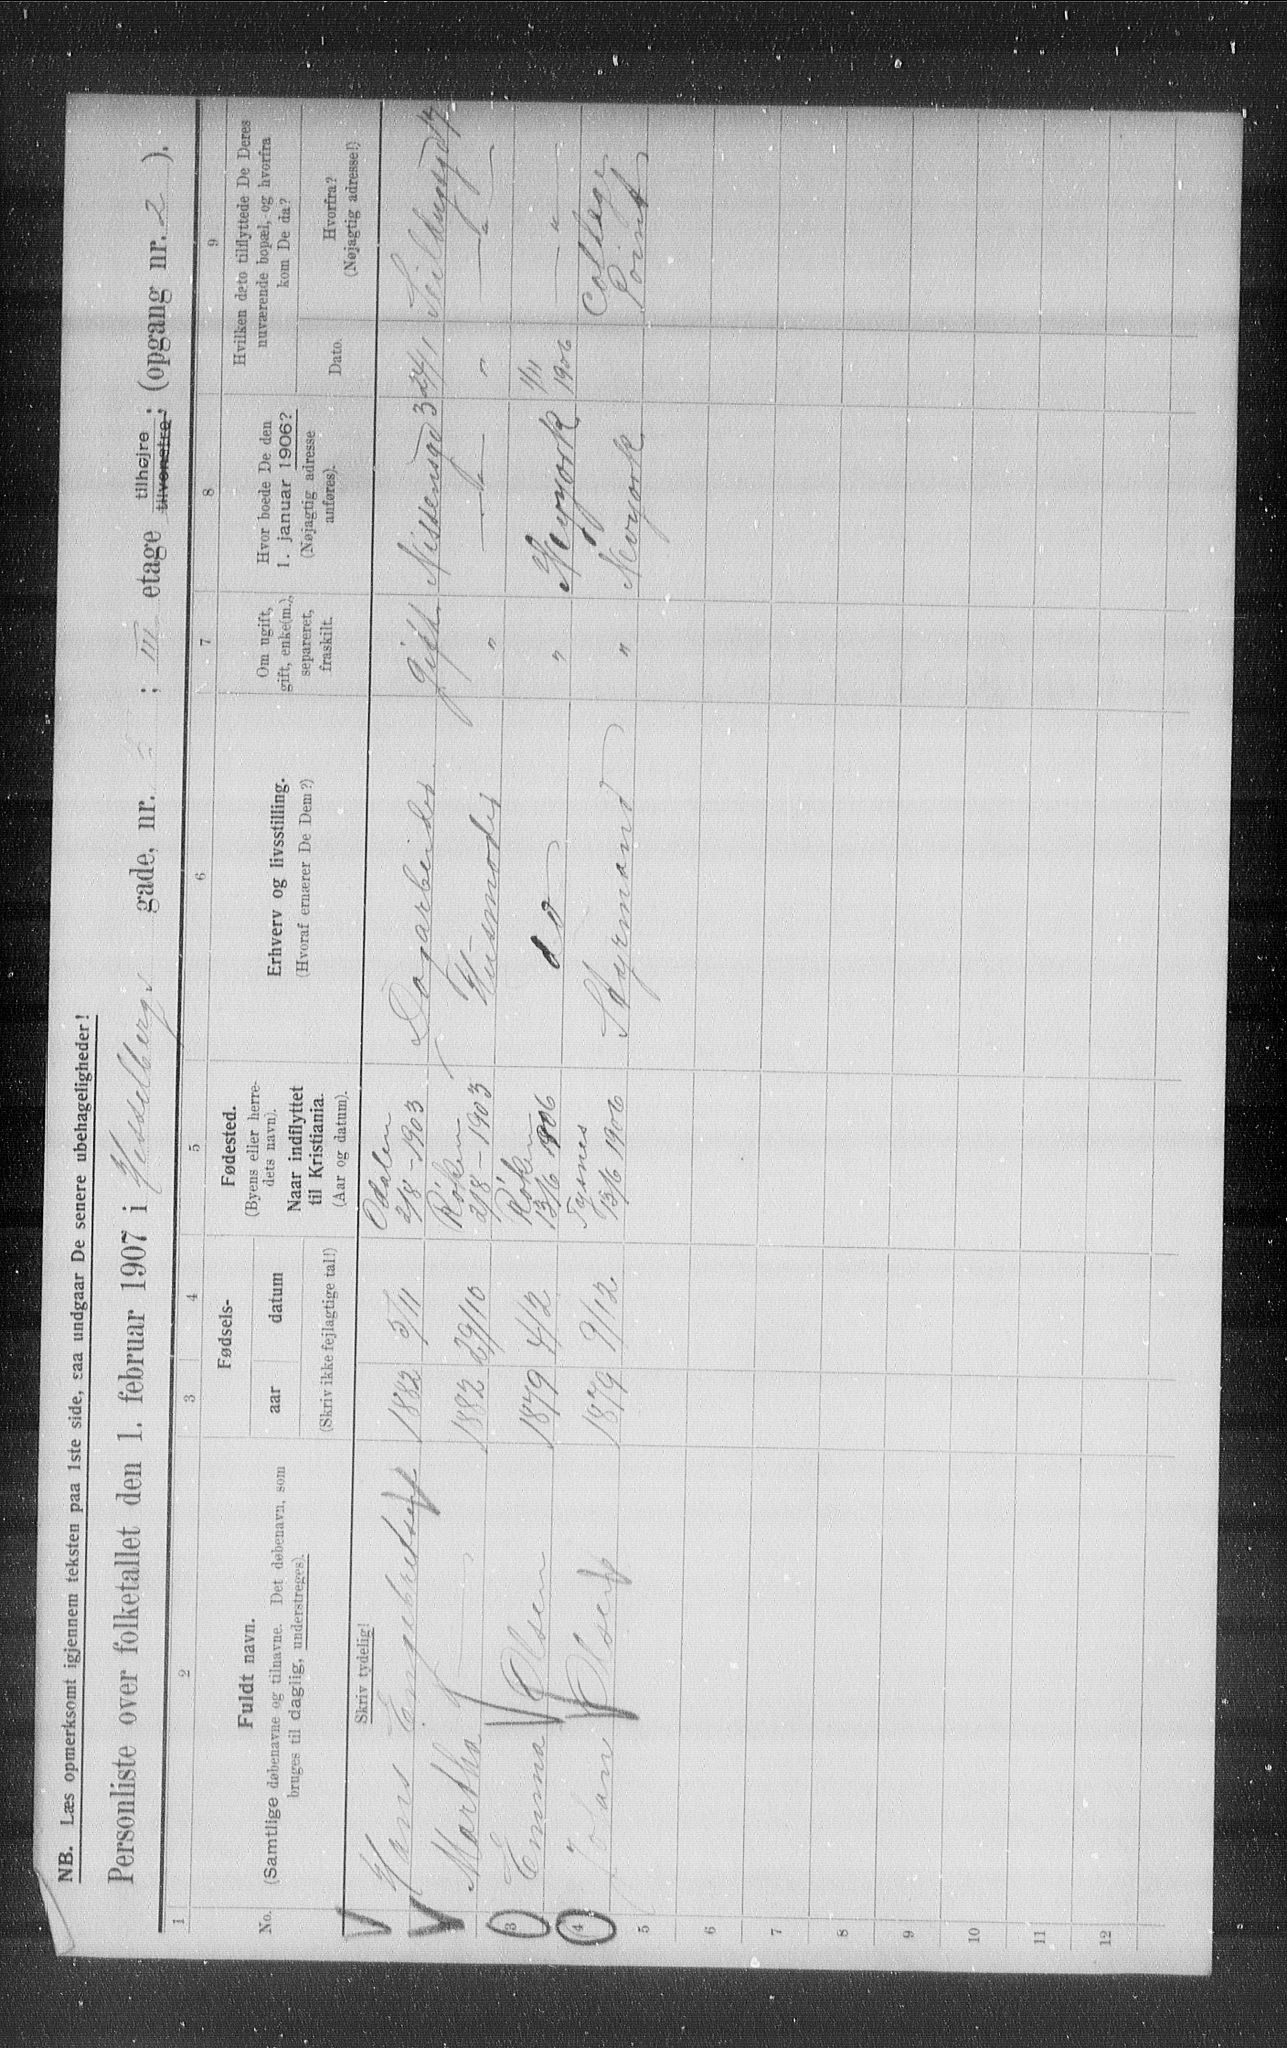 NB. Læs opmerksomt igjennem teksten paa 1ste side, saa undgaar De senere ubehageligheder!
Personliste over folketallet den 1. februar 1907 i Hesselbergs gade, nr. ; III etage tilhøjre tilvenstre; (opgang nr. 2 ).
1 2 3 4 5 6 7 8 9
No.
Fuldt navn.
(Samtlige døbenavne og tilnavne. Det døbenavn, som
bruges til daglig, understreges).
Fødsels-
aar datum
(Skriv ikke fejlagtige tal!)
Fødested.
(Byens eller herre-
dets navn).
Naar indflyttet
til Kristiania.
(Aar og datum).
Erhverv og livsstilling.
(Hvoraf ernærer De Dem?)
Om ugift,
gift, enke(m.),
separeret,
fraskilt.
Hvor boede De den
1. januar 1906?
(Nøjagtig adresse
anføres).
Hvilken dato tilflyttede De Deres
nuværende bopæl, og hvorfra
kom De da?
Dato.
Hvorfra?
(Nøjagtig adresse!)
Skriv tydelig!
Hans Engebretsen 1882 5/11 Odalen 2/8-1903 Dagarbeider gift Nissensgd 3 24/1
2 Martha 1882 29/10 Röken 2/8-1903 Husmoder " — " — " — " —
3 Emma Olsen 1879 4/2 Röken 13/6 1906 do " Newyork 1/11 1906 — " —
4 Johan Olsen 1879 9/12 Tysnes 13/6 1906 Styrmand " Newyork College Point
5
6
7
8
9
10
11
12